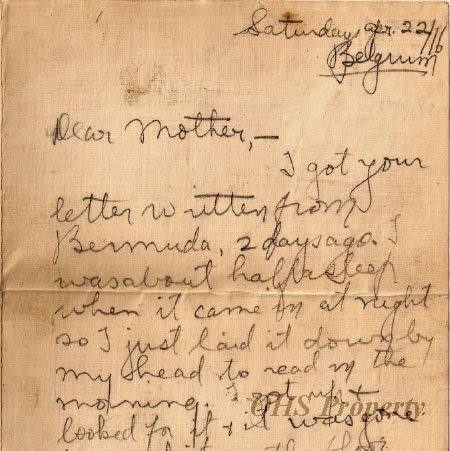 Saturday Apr. 22/16
Belgium
Dear Mother,—
I got your
letter written from
Bermuda, 2 days ago. I
was about half asleep
when it came in at night
so I just laid it down by
my head to read in the
morning. I got up +
looked for it + it was gone
OHS Property